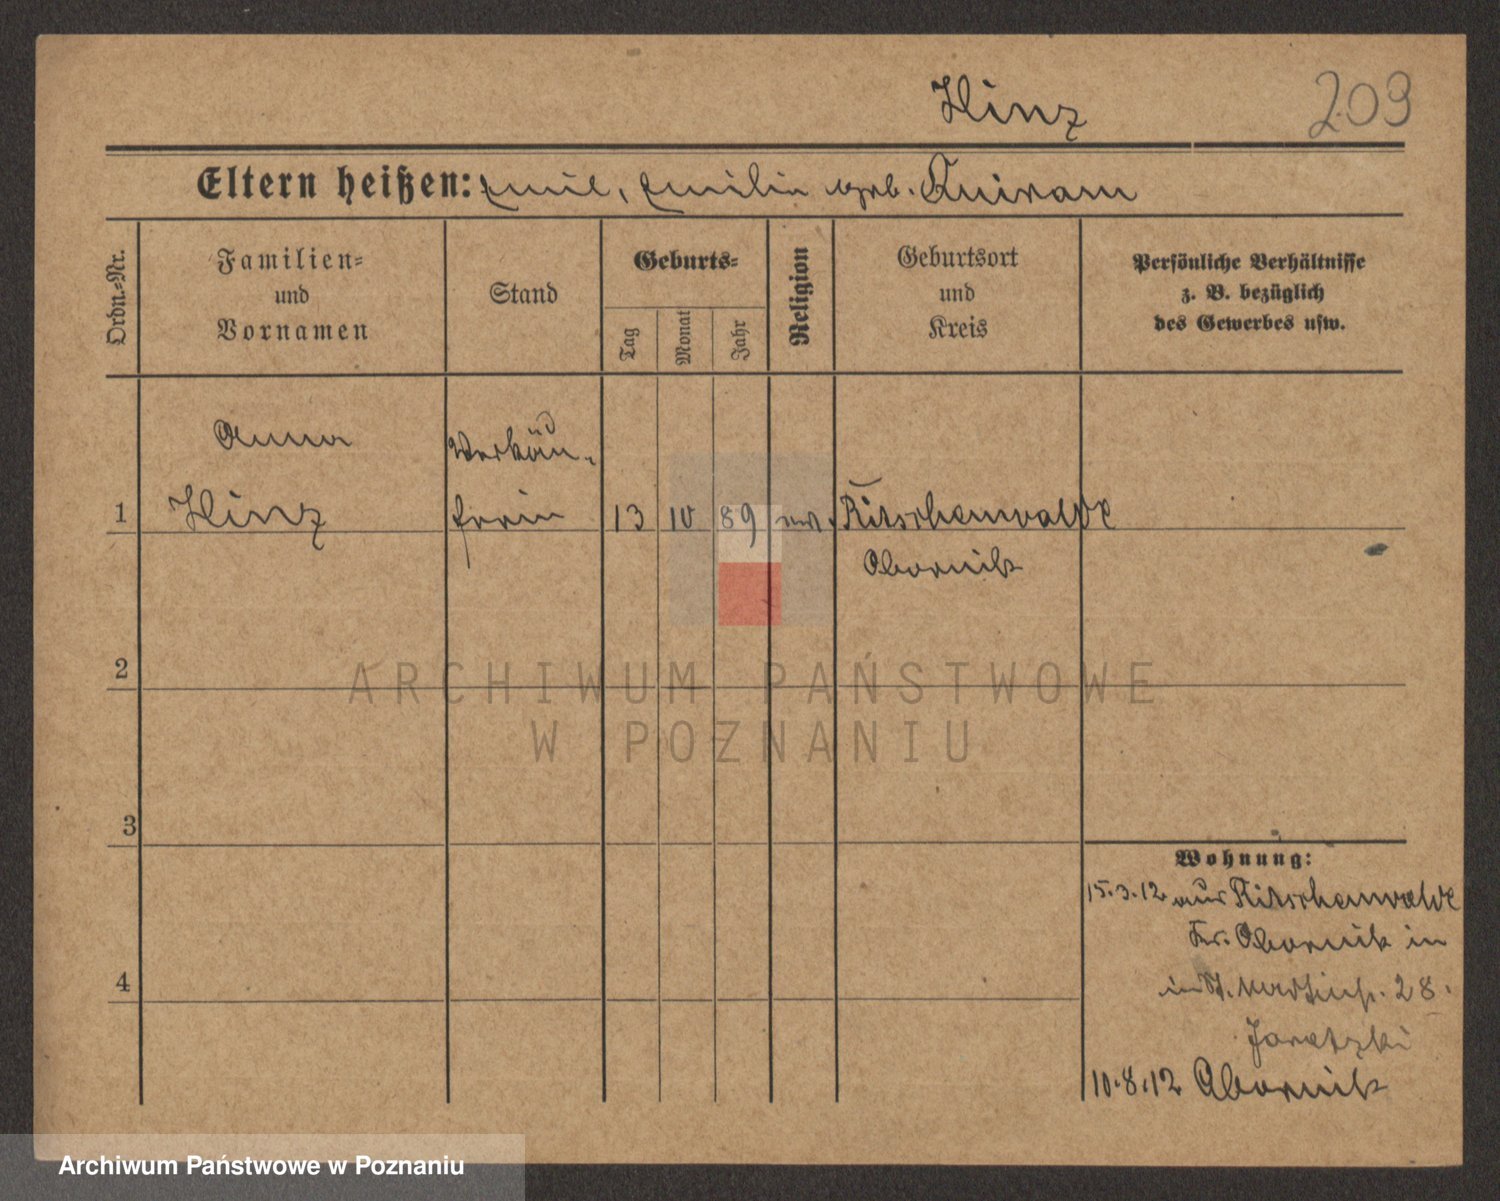 Hinz
209
Eltern heißen: Emil, Emilie geb. Kniram
Ordn.-Nr.
Familien-
und
Vornamen
Stand
Geburts-
Tag
Monat
Jahr
Religion
Geburtsort
und
Kreis
Persönliche Verhältnisse
z. B. bezüglich
des Gewerbes usw.
Anna
Verkäu-
1 Hinz ferin 13 10 89 ev. Ritschenwalde
Obornik
2
ARCHIWUM PAŃSTWOWE
W POZNANIU
3
Wohnung:
15.3.12 aus Ritschenwalde
Kr. Obornik in
4
in St. Martinstr. 28.
Jaretzki
10.8.12 Obornik
Archiwum Państwowe w Poznaniu